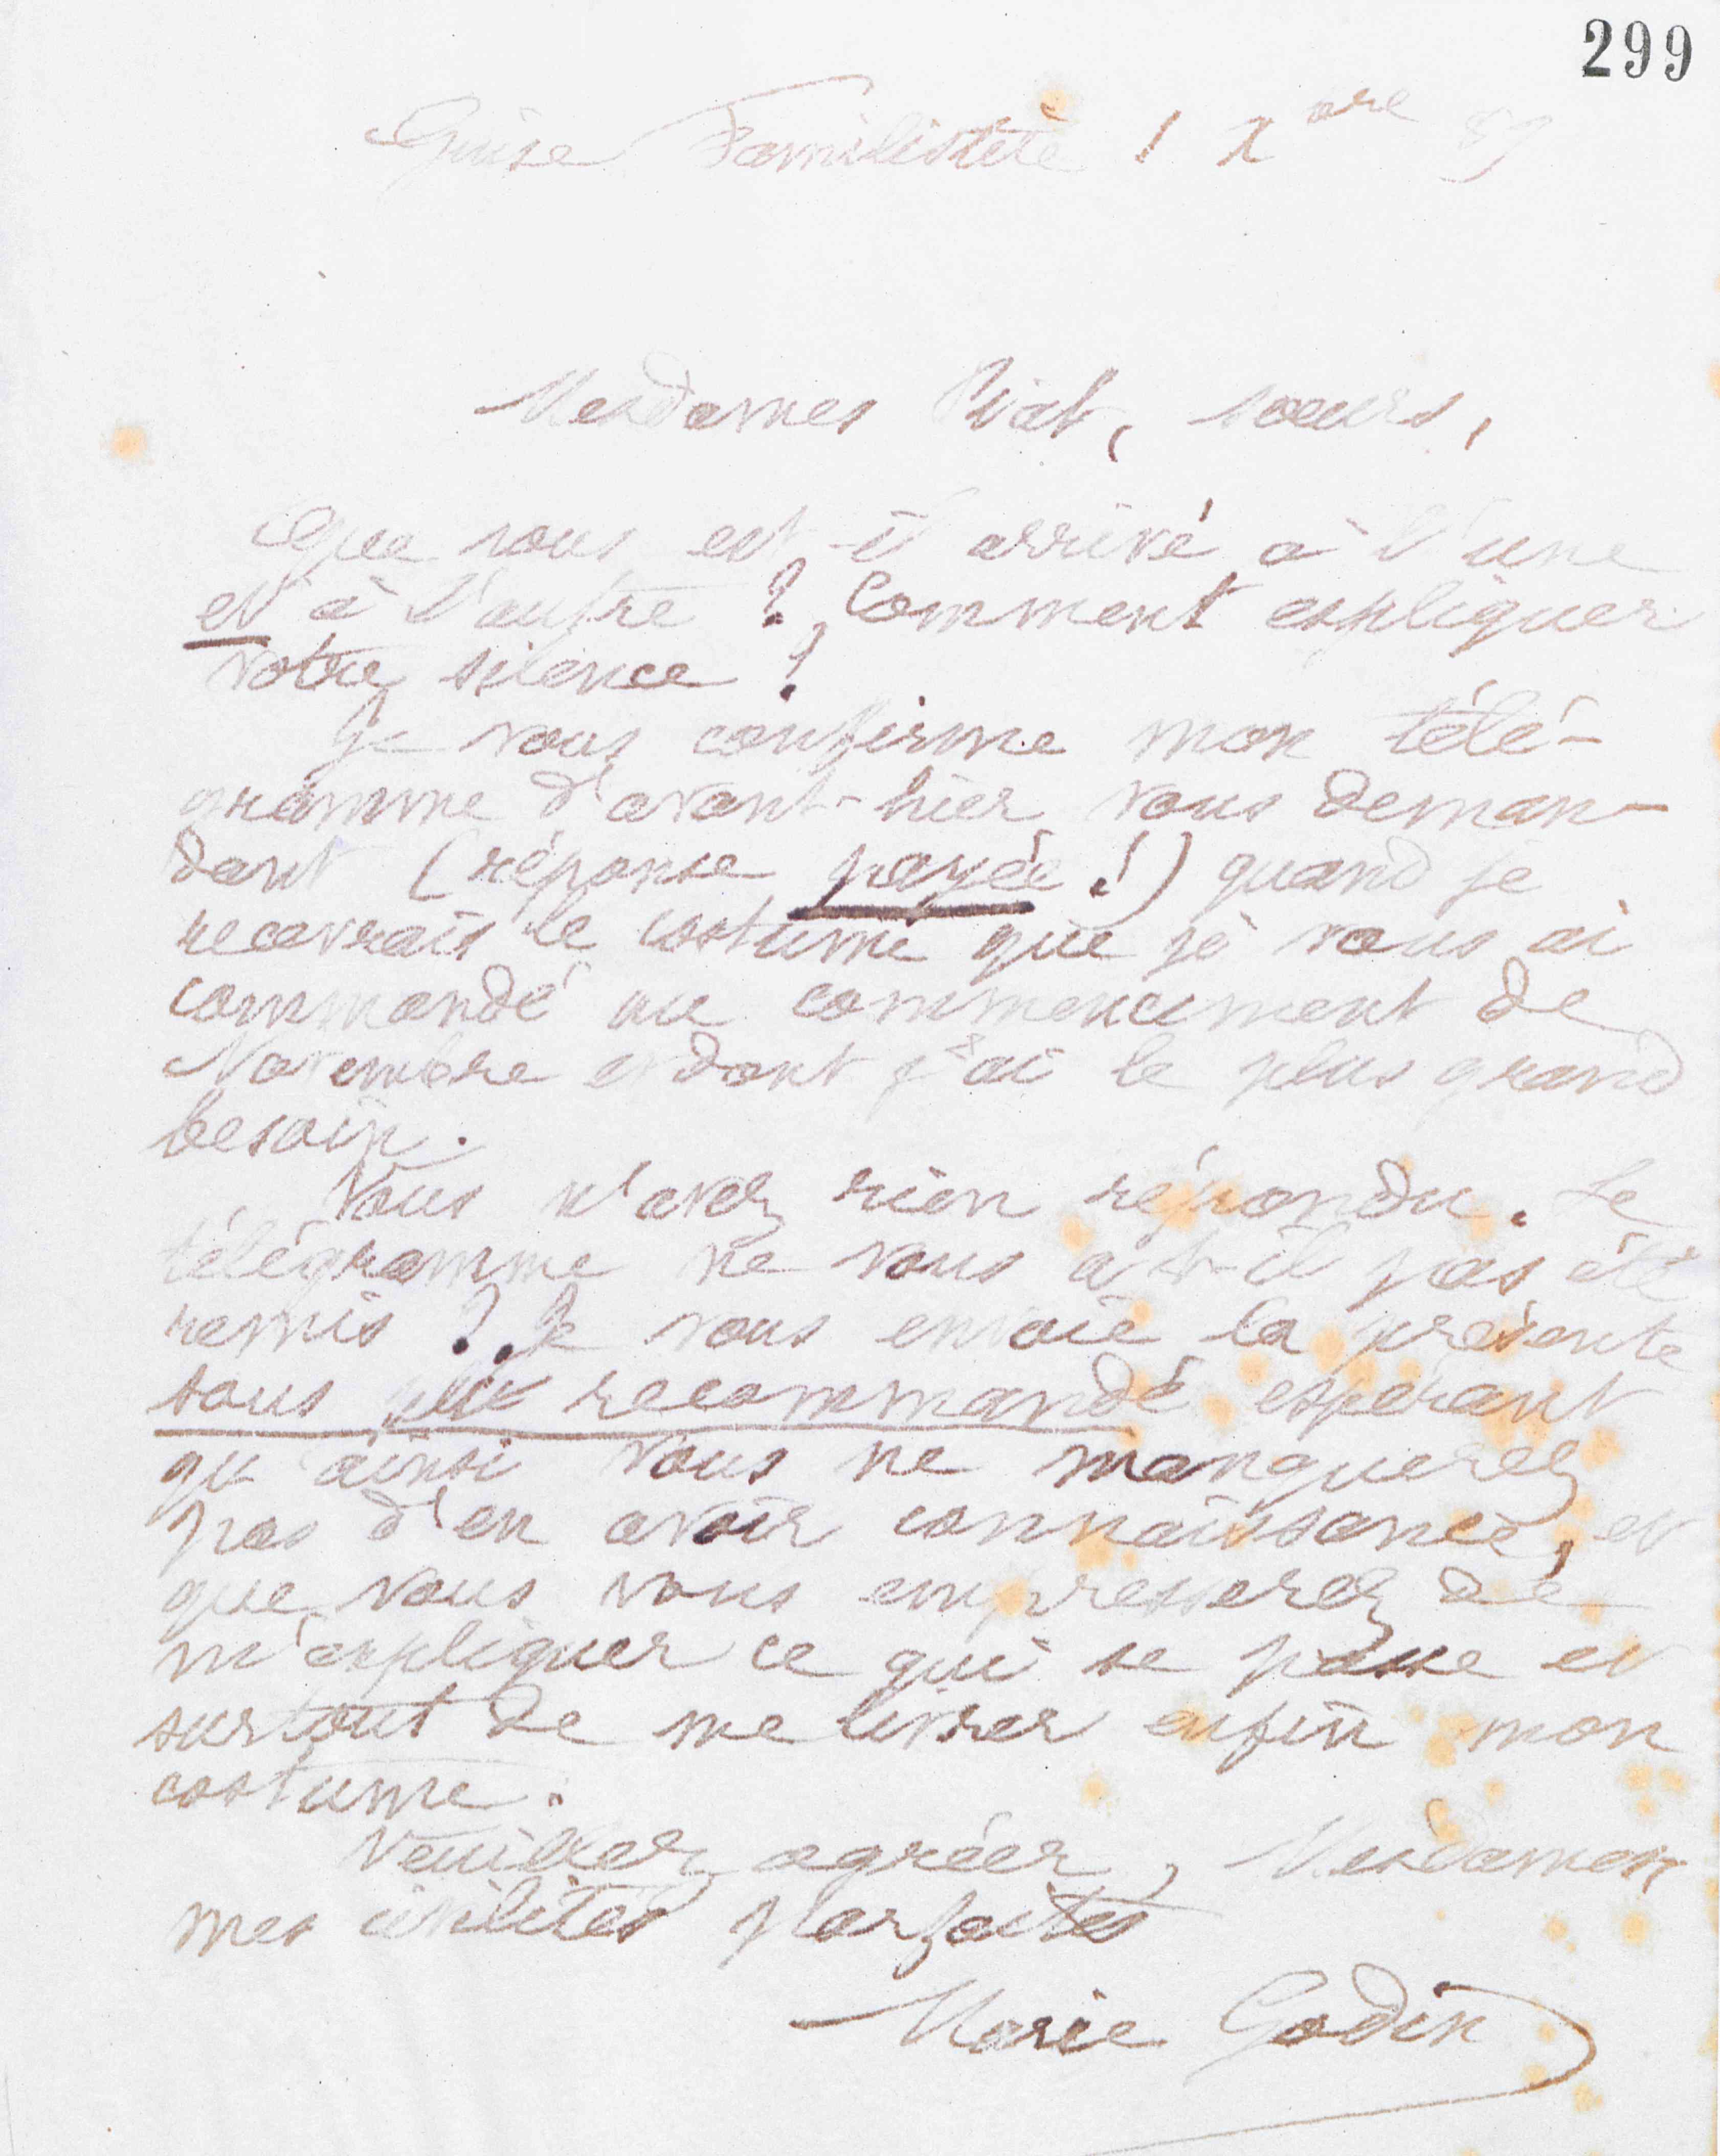 299
Guise Familistère 1 Xbre 89
Mesdames Piat, sœurs,
Que vous est-il arrivé à l'une
et à l'autre ? Comment expliquer
votre silence ?
Je vous confirme mon télé-
gramme d'avant-hier vous deman-
dant (réponse payée !) quand je
recevrais le costume que je vous ai
commandé au commencement de
Novembre et dont j'ai le plus grand
besoin.
Vous n'avez rien répondu. Le
télégramme ne vous a-t-il pas été
remis ? Je vous envoie la présente
sous pli recommandé espérant
qu'ainsi vous ne manquerez
pas d'en avoir connaissance, et
que vous vous empresserez de
m'expliquer ce qui se passe et
surtout de me livrer enfin mon
costume.
Veuillez agréer, Mesdames,
mes civilités parfaites
Marie Godin